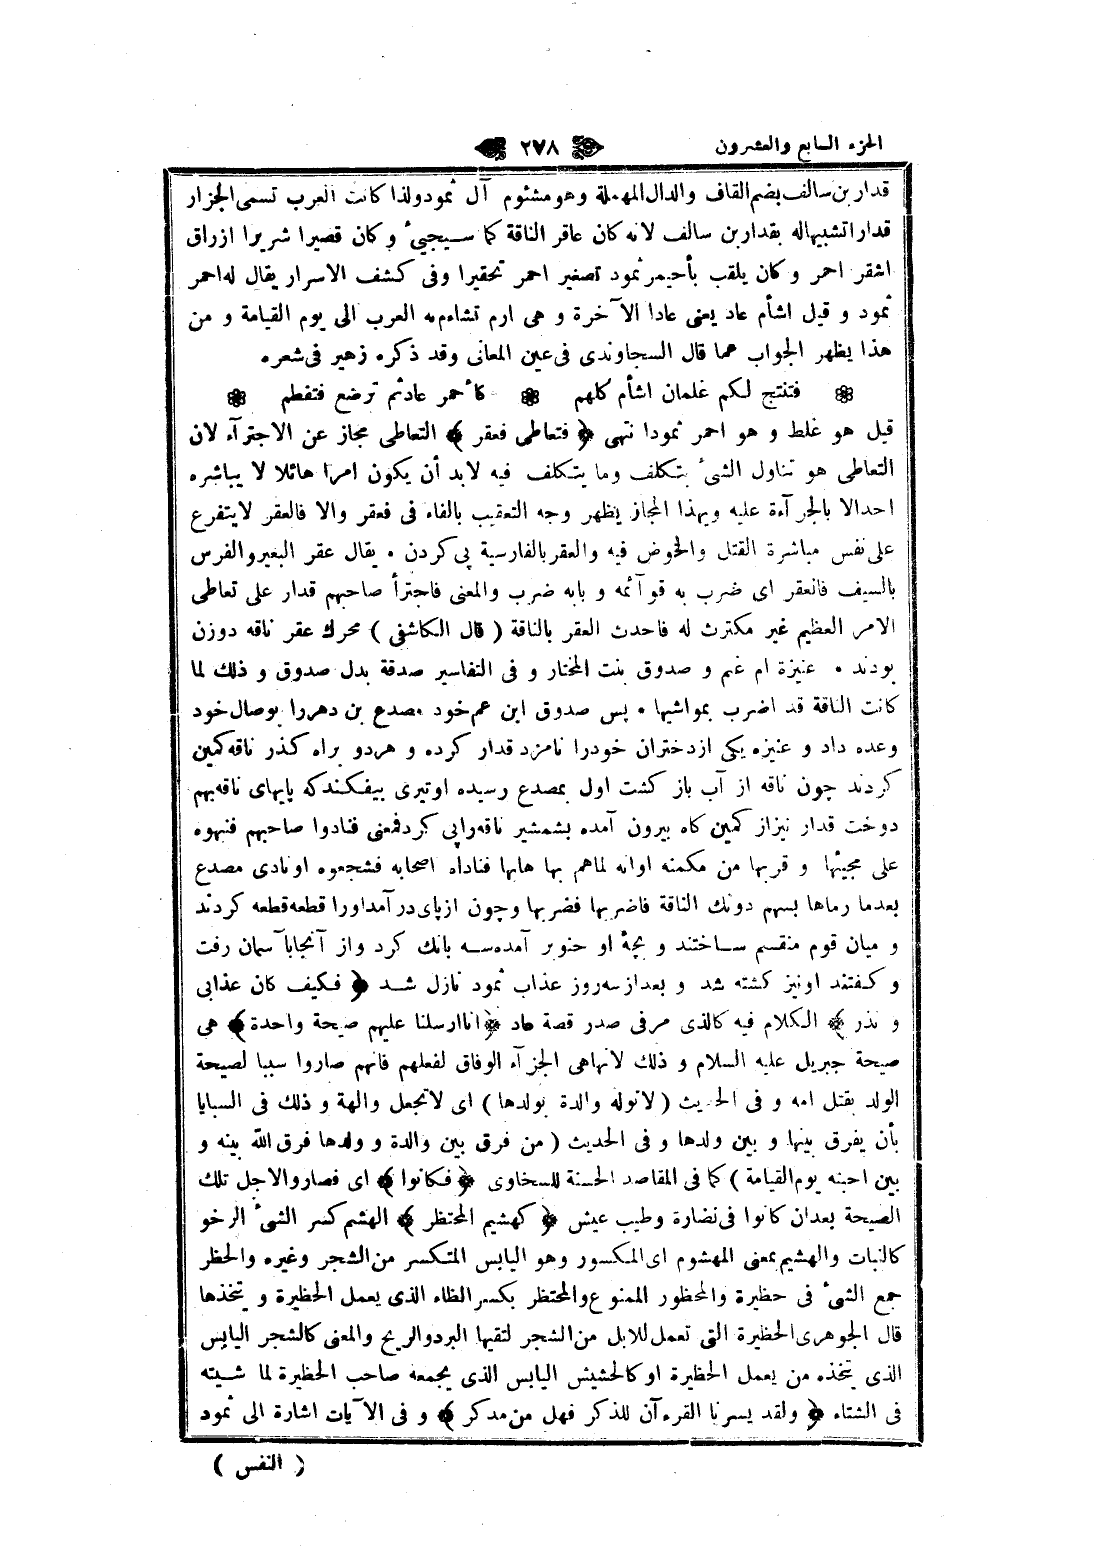 الجزء السابع والعشرون ٢٧٨
قدار بن سالف بضم القاف والدال المهملة وهو مشئوم آل ثمود ولذا كانت العرب تسمى الجزار
قدارا تشبيها له بقدار بن سالف لانه كان عاقر الناقة كما سيجيئ و كان قصيرا شريرا ازراق
اشقر احمر و كان يلقب بأحيمر ثمود تصغير احمر تحقيرا وفى كشف الاسرار يقال له احمر
ثمود و قيل اشأم عاد يعنى عادا الآخرة و هى ارم تشاءم به العرب الى يوم القيامة و من
هذا يظهر الجواب عما قال السجاوندى فى عين المعانى وقد ذكره زهير فى شعره
فتنتج لكم غلمان اشأم كلهم ❁ كأحمر عاد ثم ترضع فتفطم
قيل هو غلط و هو احمر ثمود انتهى ﴿ فتعاطى فعقر ﴾ التعاطى مجاز عن الاجترآء لان
التعاطى هو تناول الشئ بتكلف وما يتكلف فيه لابد أن يكون امرا هائلا لا يباشره
احد الا بالجرآءة عليه وبهذا المجاز يظهر وجه التعقيب بالفاء فى فعقر والا فالعقر لا يتفرع
على نفس مباشرة القتل والخوض فيه والعقر بالفارسية پى كردن . يقال عقر البعير والفرس
بالسيف فانعقر اى ضرب به قوآئمه و بابه ضرب والمعنى فاجترأ صاحبهم قدار على تعاطى
الامر العظيم غير مكترث له فاحدث العقر بالناقة ( قال الكاشفى ) محرك عقر ناقه دوزن
بودند . عنيزة ام غنم و صدوق بنت المختار و فى التفاسير صدقة بدل صدوق و ذلك لما
كانت الناقة قد اضرب بمواشيها . پس صدوق ابن عم خود مصدع بن دهررا بوصال خود
وعده داد و عنيزه يكى از دختران خودرا نامزد قدار كرده و هردو براه كذر ناقه كمين
كردند چون ناقه از آب باز كشت اول بمصدع رسيده اوتيرى بيفكند كه پايهاى ناقه بهم
دوخت قدار نيز از كمين كاه بيرون آمده بشمشير ناقه راپى كرد فمعنى فنادوا صاحبهم فنبهوه
على مجيئها و قربها من مكمنه اوانه لماهم بها هابها فناداه اصحابه فشجعوه او نادى مصدع
بعدما رماها بسهم دونك الناقة فاضربها فضربها وچون ازپاى در آمد اورا قطعه قطعه كردند
و ميان قوم منقسم ساختند و بچۀ او حنوبر آمده سه بانك كرد و از آنجا بآسمان رفت
و كفتند او نيز كشته شد و بعد از سه روز عذاب ثمود نازل شد ﴿ فكيف كان عذابى
و نذر ﴾ الكلام فيه كالذى مر فى صدر قصة عاد ﴿ انا ارسلنا عليهم صيحة واحدة ﴾ هى
صيحة جبريل عليه السلام و ذلك لانها هى الجزآء الوفاق لفعلهم فانهم صاروا سببا لصيحة
الولد بقتل امه و فى الحديث ( لاتوله والدة بولدها ) اى لاتجعل والهة و ذلك فى السبايا
بأن يفرق بينها و بين ولدها و فى الحديث ( من فرق بين والدة و ولدها فرق الله بينه و
بين احبته يوم القيامة ) كما فى المقاصد الحسنة للسخاوى ﴿ فكانوا ﴾ اى فصاروا لاجل تلك
الصيحة بعد ان كانوا فى نضارة وطيب عيش ﴿ كهشيم المحتظر ﴾ الهشم كسر الشئ الرخو
كالنبات والهشيم بمعنى المهشوم اى المكسور وهو اليابس المتكسر من الشجر وغيره والحظر
جمع الشئ فى حظيرة والمحظور الممنوع والمحتظر بكسر الظاء الذى يعمل الحظيرة و يتخذها
قال الجوهرى الحظيرة التى تعمل للابل من الشجر لتقيها البرد والريح والمعنى كالشجر اليابس
الذى يتخذه من يعمل الحظيرة او كالحشيش اليابس الذى يجمعه صاحب الحظيرة لما شيته
فى الشتاء ﴿ ولقد يسرنا القرءآن للذكر فهل من مدكر ﴾ و فى الآيات اشارة الى ثمود
( النفس )